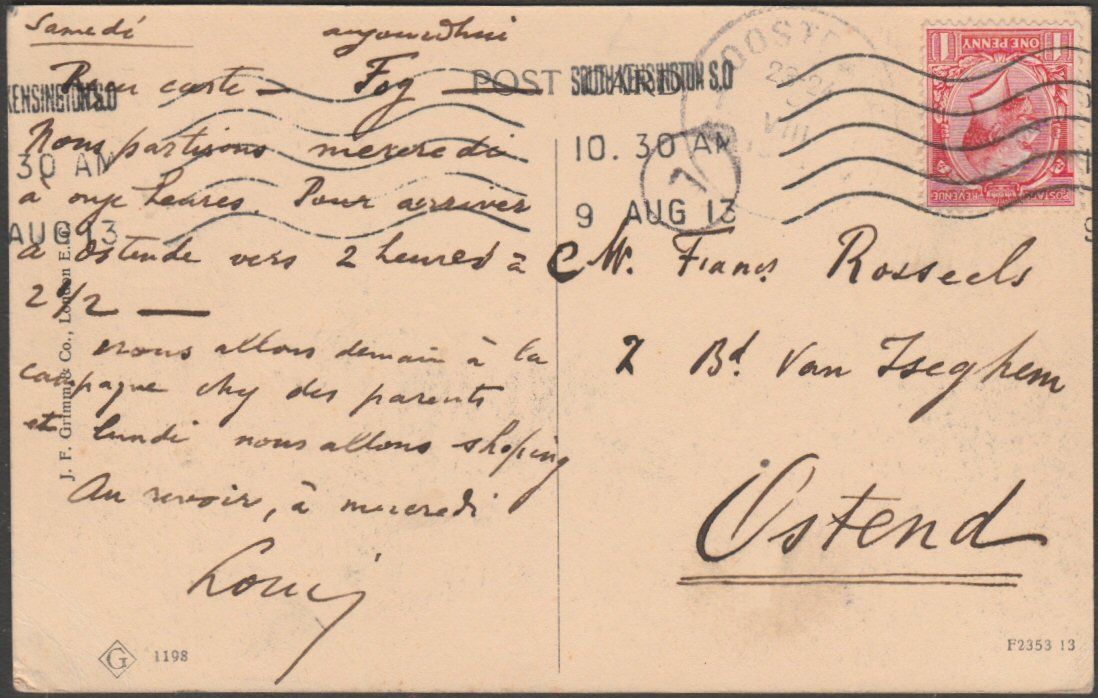 Samedi aujourdhui
carte — Fog
POST CARD
Nous partirons mercredi
à onze heures. Pour arriver
à Ostende vers 2 heures à
2 1/2 —
nous allons demain à la
campagne chez des parents
et lundi nous allons shoping
Au revoir, à mercredi
Louis
J. F. Grimm & Co., London E.C.
G 1198
KENSINGTON S.O
30 AM
AUG 13
SOUTH KENSINGTON S.O
10. 30 AM
9 AUG 13
OOSTE
VIII
1
ONE PENNY
1
POSTAGE
REVENUE
M. Frans Rosseels
2 Bd. Van Iseghem
Ostend
F2353 13